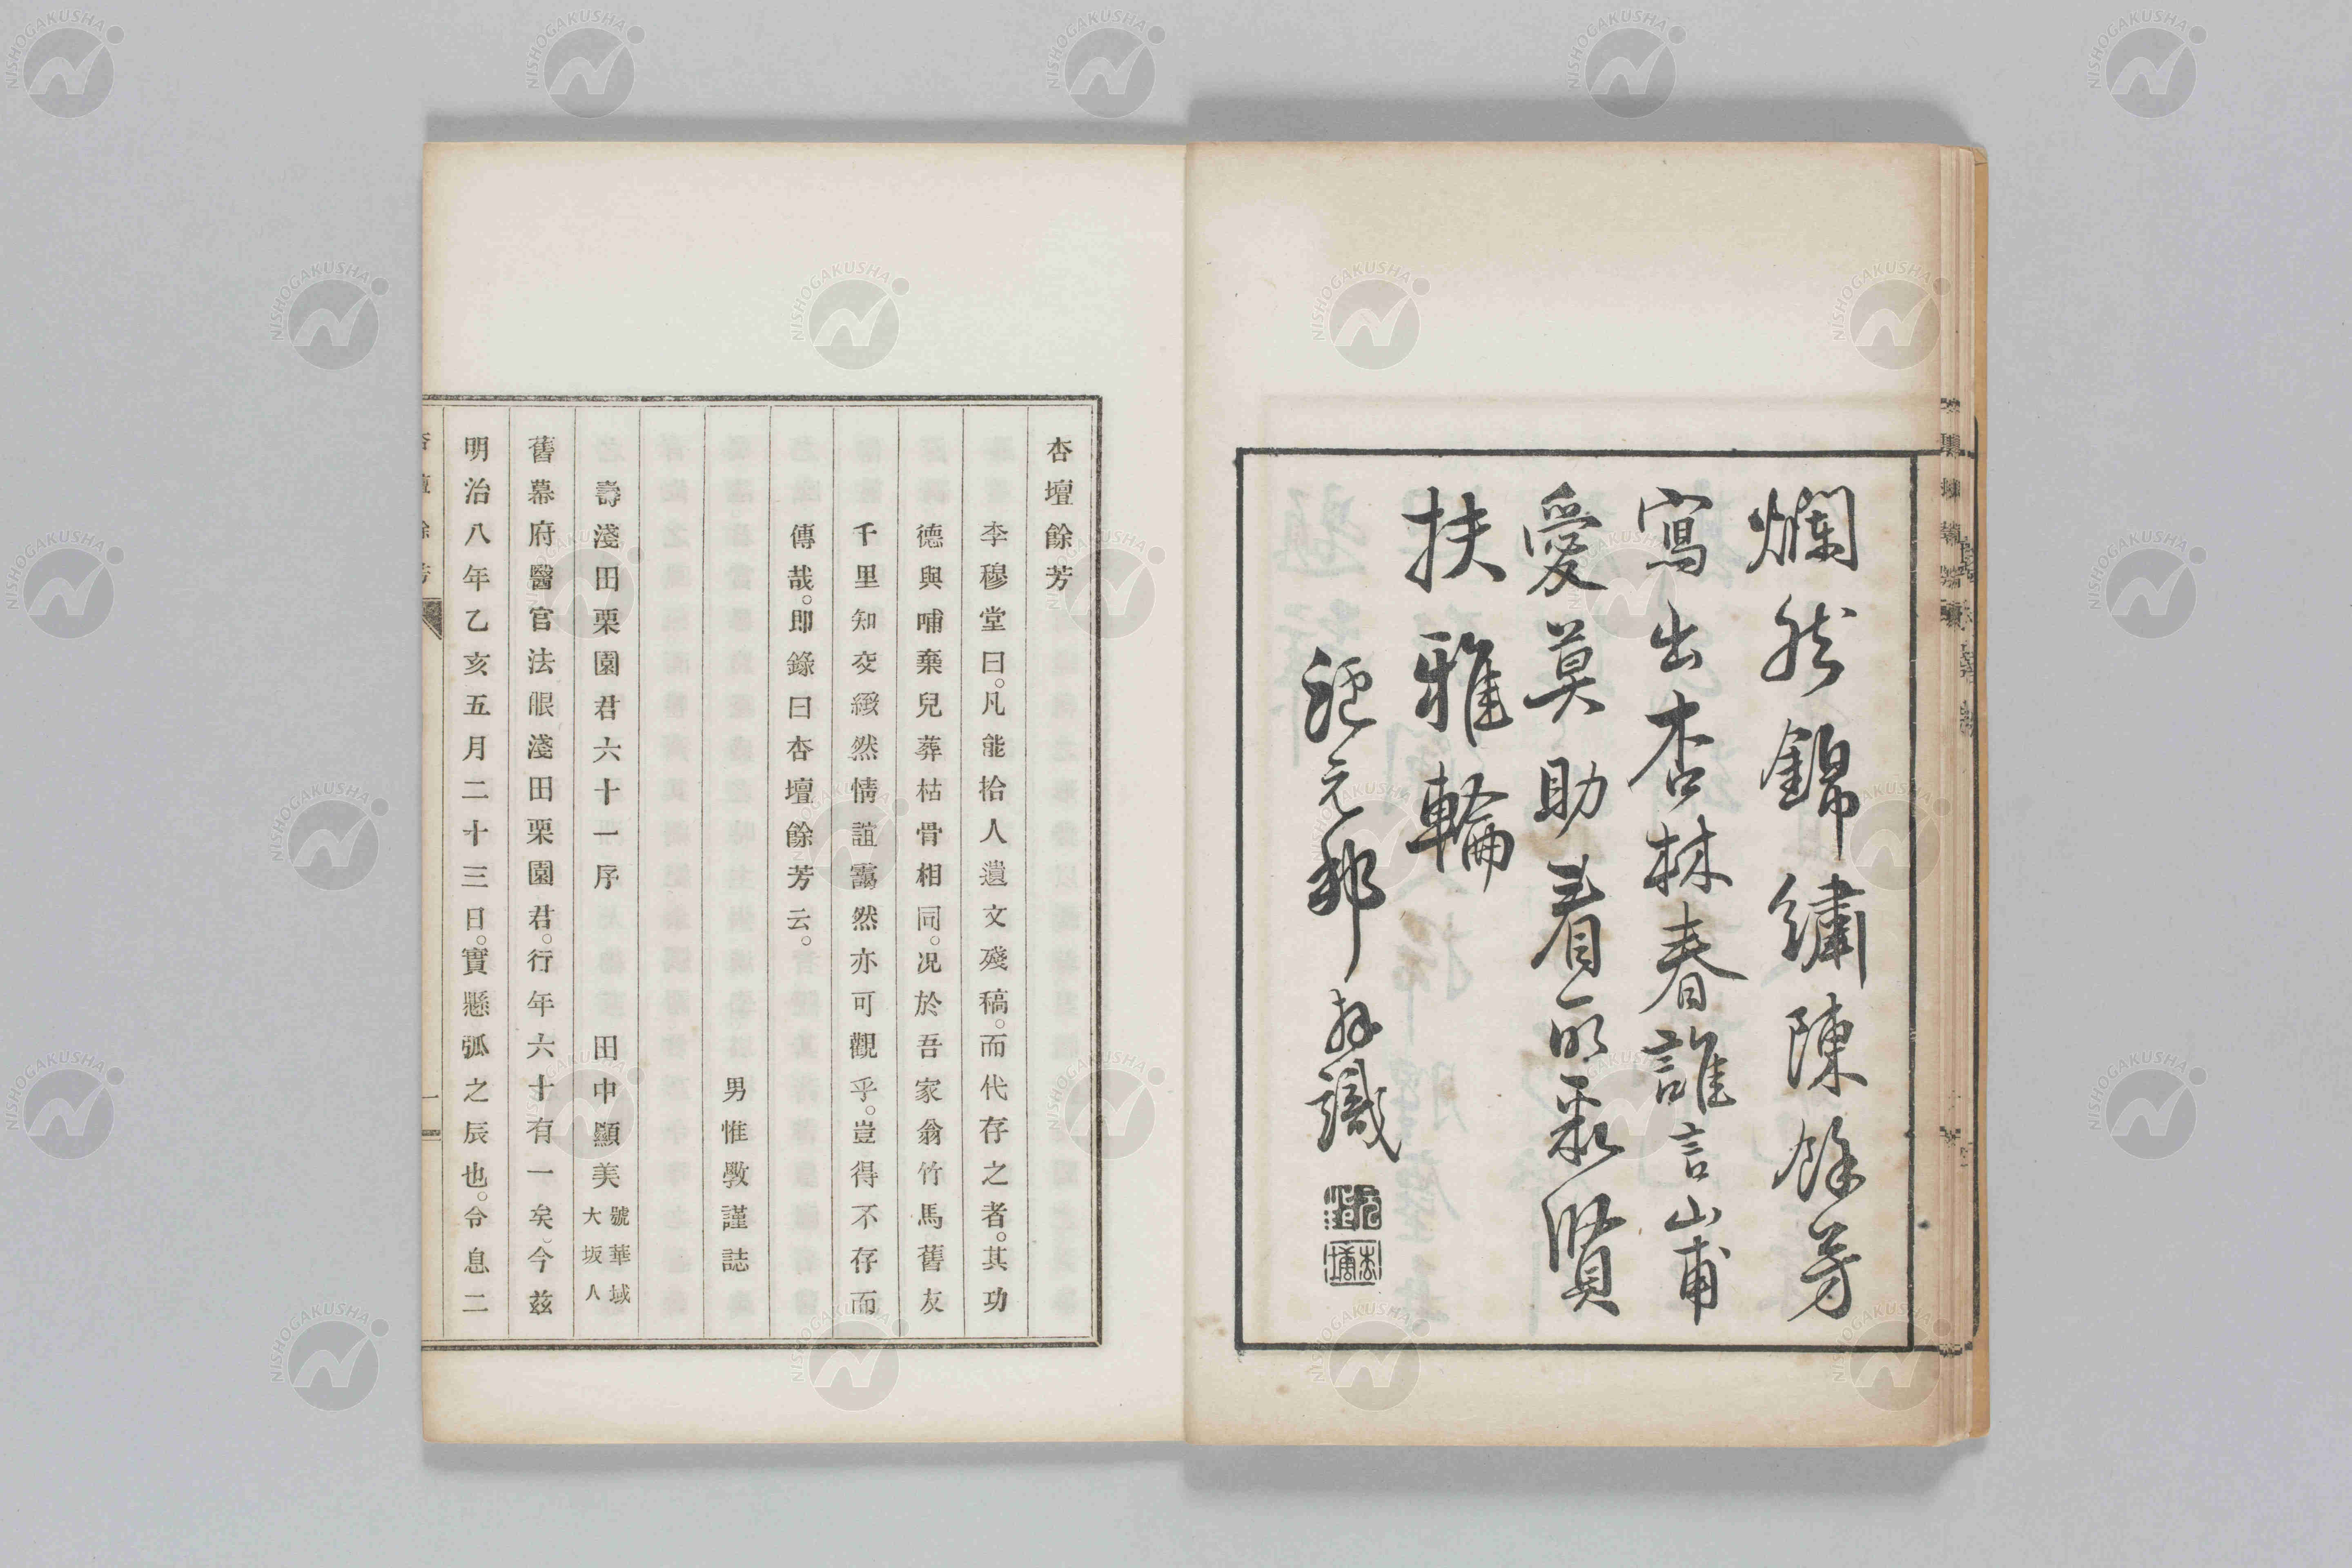 爛然錦繡陳餘芳
寫出杏林春誰言山甫
愛莫助看取群賢
扶雅輪
元邦拜識
杏壇餘芳
李穆堂曰。凡能拾人遺文殘稿。而代存之者。其功
德與哺棄兒葬枯骨相同。况於吾家翁竹馬舊友
千里知交緻然情誼靄然亦可觀乎。豈得不存而
傳哉。即錄曰杏壇餘芳云。
男惟斆謹誌
壽淺田栗園君六十一序 田中顯美 號華城 大坂人
舊幕府醫官法眼淺田栗園君。行年六十有一矣。今茲
明治八年乙亥五月二十三日。實懸弧之辰也。令息二
NISHOGAKUSHA